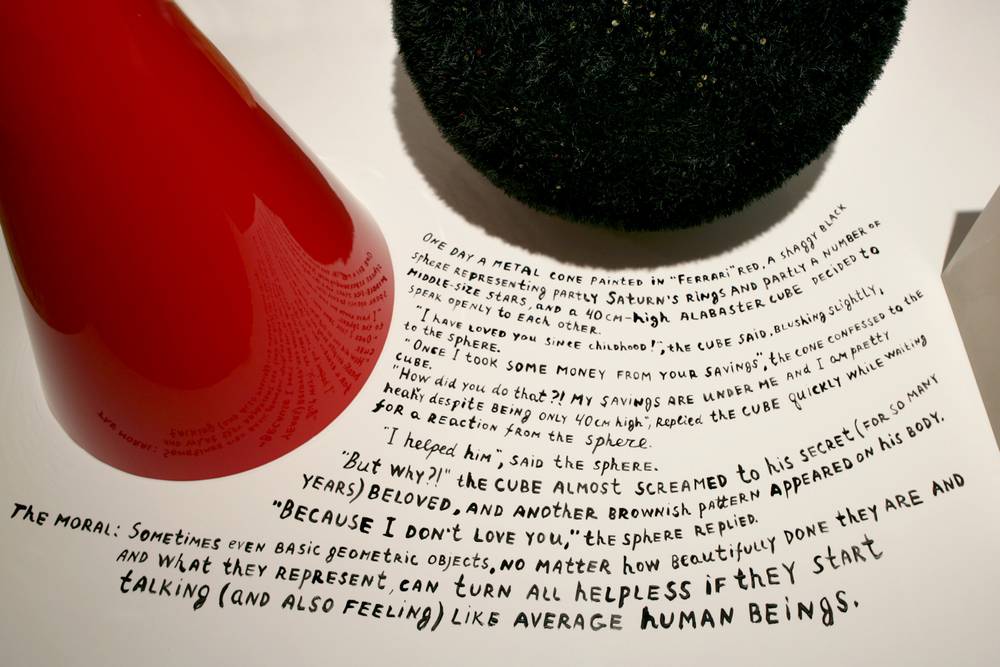 ONE DAY A METAL CONE PAINTED IN "FERRARI" RED, A SHAGGY BLACK
SPHERE REPRESENTING PARTLY SATURN'S RINGS AND PARTLY A NUMBER OF
MIDDLE-SIZE STARS, AND A 40CM-HIGH ALABASTER CUBE DECIDED TO
SPEAK OPENLY TO EACH OTHER.
"I HAVE LOVED YOU SINCE CHILDHOOD!", THE CUBE SAID, BLUSHING SLIGHTLY,
TO THE SPHERE.
"ONCE I TOOK SOME MONEY FROM YOUR SAVINGS", THE CONE CONFESSED TO THE
CUBE.
"HOW DID YOU DO THAT?! MY SAVINGS ARE UNDER ME AND I AM PRETTY
HEAVY DESPITE BEING ONLY 40CM HIGH", REPLIED THE CUBE QUICKLY WHILE WAITING
FOR A REACTION FROM THE SPHERE.
"I HELPED HIM", SAID THE SPHERE.
"BUT WHY?!" THE CUBE ALMOST SCREAMED TO HIS SECRET (FOR SO MANY
YEARS) BELOVED, AND ANOTHER BROWNISH PATTERN APPEARED ON HIS BODY.
"BECAUSE I DON'T LOVE YOU," THE SPHERE REPLIED.
THE MORAL: SOMETIMES EVEN BASIC GEOMETRIC OBJECTS, NO MATTER HOW BEAUTIFULLY DONE THEY ARE AND
AND WHAT THEY REPRESENT, CAN TURN ALL HELPLESS IF THEY START
TALKING (AND ALSO FEELING) LIKE AVERAGE HUMAN BEINGS.